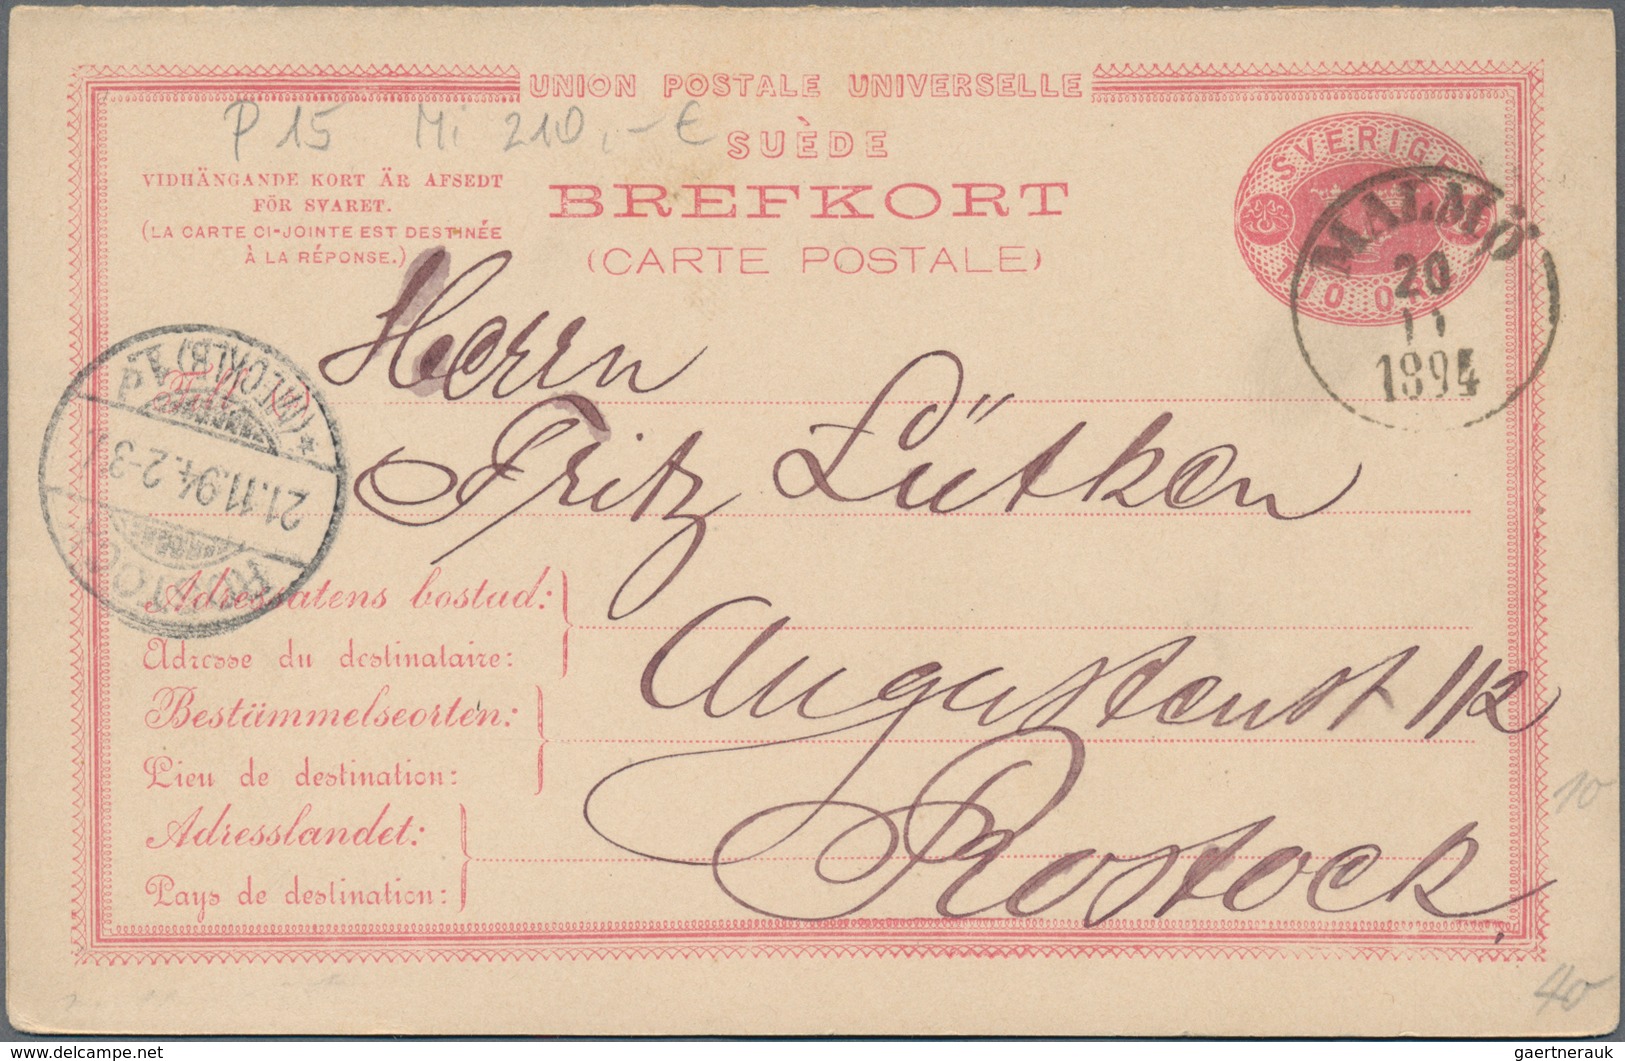 UNION POSTALE UNIVERSELLE
P 15 Mi 210,-€
SUÈDE
VIDHÄNGANDE KORT ÄR AFSEDT
FÖR SVARET.
(LA CARTE CI-JOINTE EST DESTINÉE
À LA RÉPONSE.)
BREFKORT
(CARTE POSTALE)
SVERIGE
TIO ÖRE
MALMÖ
20
11
1894
Herrn
Till
Fritz Lütken
ROSTOCK
21.11.94.2-3
(MECKLB)
Adressatens bostad:
Adresse du destinataire:
Augustenst 112
Bestämmelseorten:
Lieu de destination:
Rostock
Adresslandet:
Pays de destination:
10
40
delcampe.net
gaertnerauk